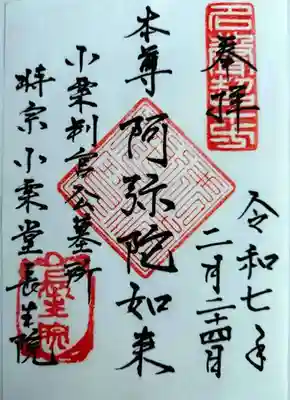 奉拝
令和七年
二月二十四日
本尊
阿弥陀如来
小栗判官公墓所
時宗小栗堂長生院
長生院